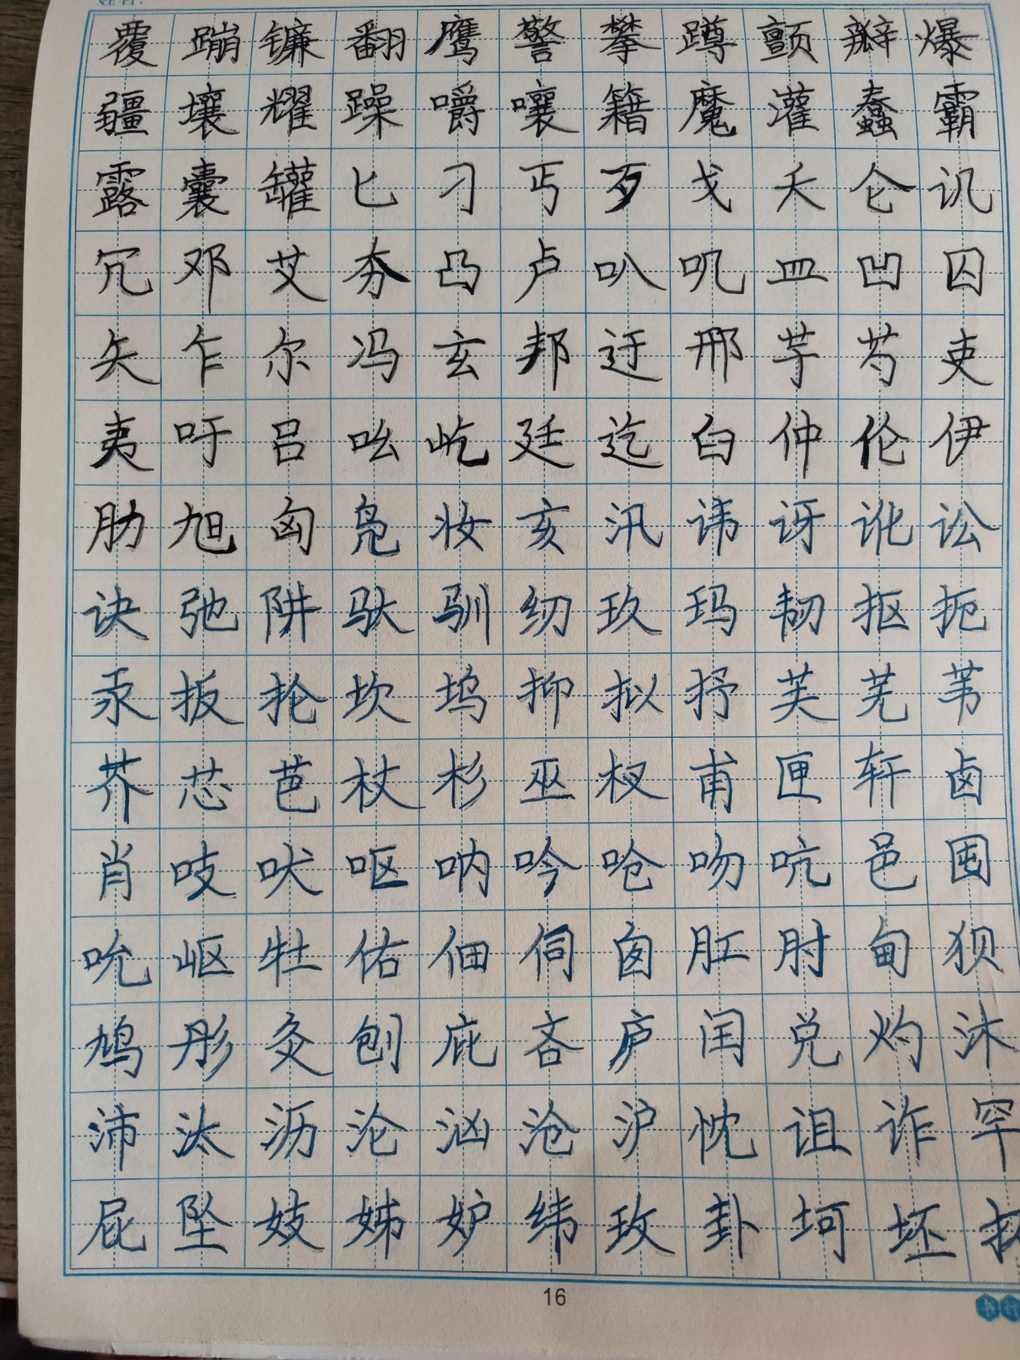 覆蹦镰翻鹰警攀蹲颤瓣爆
疆壤耀躁嚼嚷籍魔灌蠢霸
露囊罐匕刁丐歹戈夭仑讥
冗邓艾夯凸卢叭叽皿凹囚
矢乍尔冯玄邦迂邢芋芍吏
夷吁吕吆屹廷迄臼仲伦伊
肋旭匈凫妆亥汛讳讶讹讼
诀弛阱驮驯纫玖玛韧抠扼
汞扳抡坎坞抑拟抒芙芜苇
芥芯芭杖杉巫杈甫匣轩卤
肖吱吠呕呐吟呛吻吭邑囤
吮岖牡佑佃伺囱肛肘甸狈
鸠彤灸刨庇吝庐闰兑灼沐
沛汰沥沦汹沧沪忱诅诈罕
屁坠妓姊妒纬玫卦坷坯
16